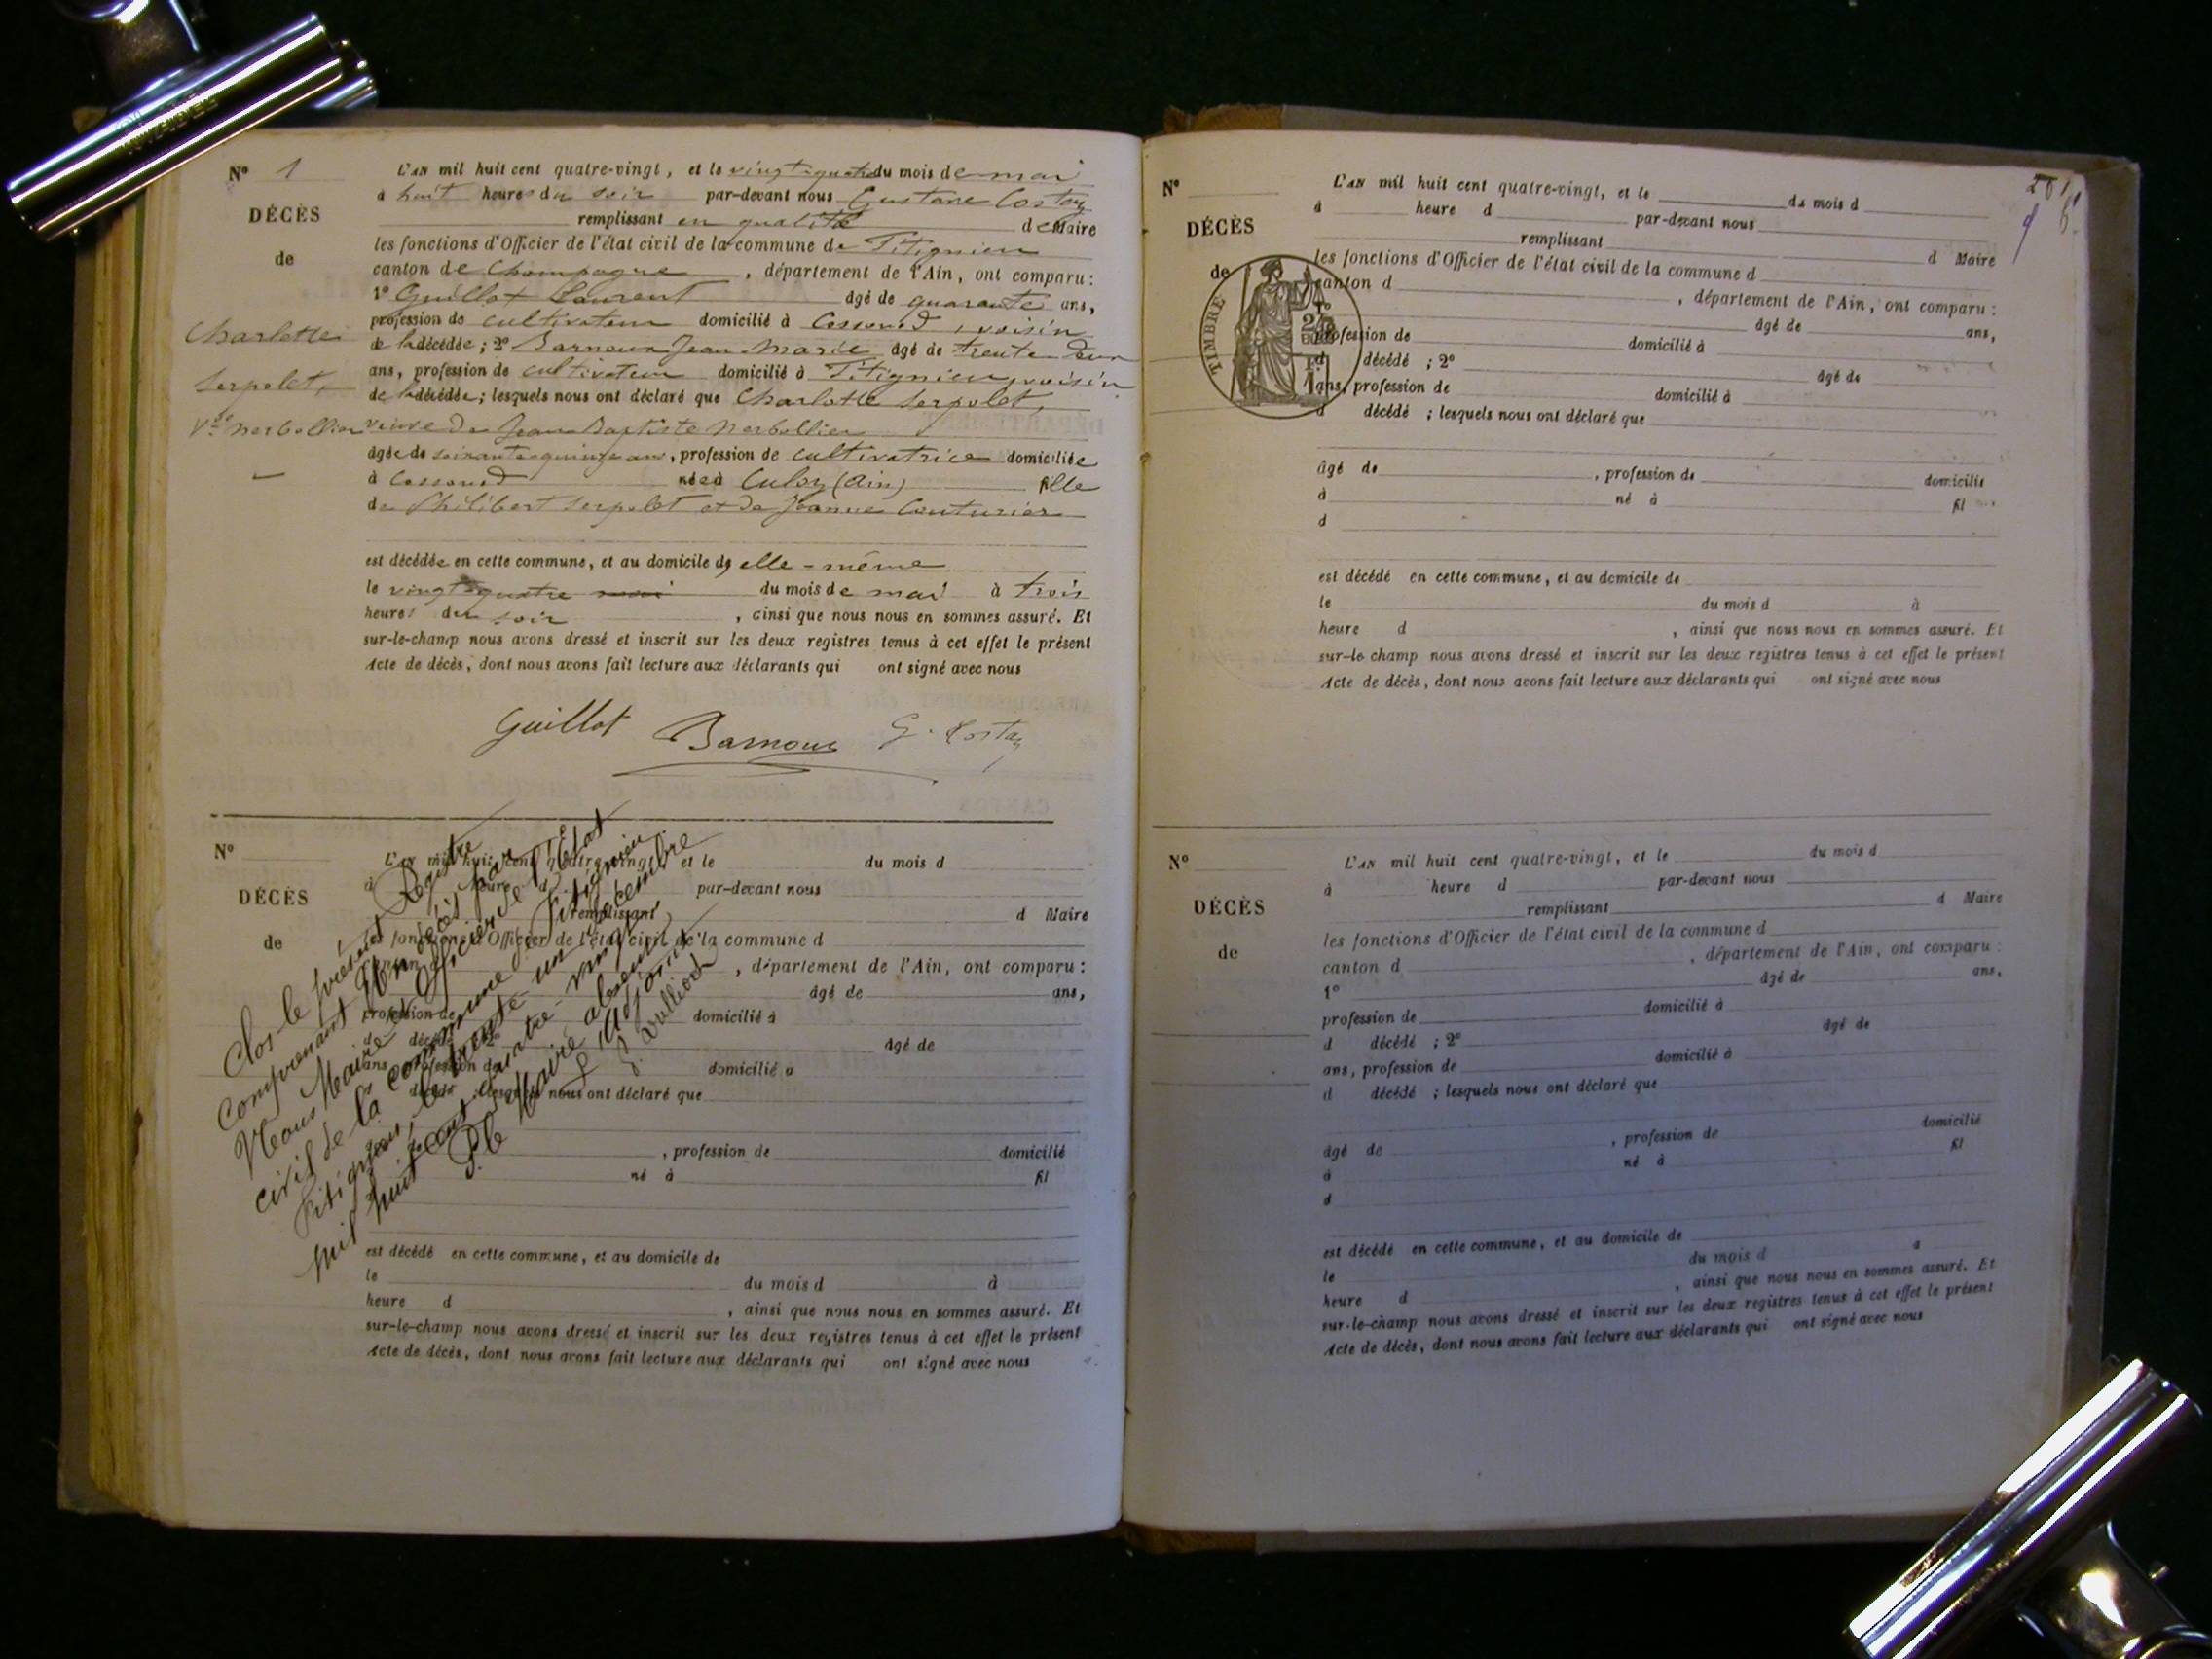 Nº 1
L'AN mil huit cent quatre-vingt, et le vingt-quatre du mois de mai
à huit heures du soir par-devant nous Gustave Costaz
DÉCÈS
remplissant en qualité de Maire
les fonctions d'Officier de l'état civil de la commune de Fitignieu
de
canton de Champagne, département de l'Ain, ont comparu:
1º Guillot Laurent âgé de quarante ans,
profession de cultivateur domicilié à Cessond, voisin
Charlotte
de la décédée; 2º Barnoux Jean-Marie âgé de trente deux
ans, profession de cultivateur domicilié à Fitignieu, voisin
Serpolet,
de la décédée; lesquels nous ont déclaré que Charlotte Serpolet,
Vve Nerbollier
veuve de Jean Baptiste Nerbollier
âgée de soixante quinze ans, profession de cultivatrice domiciliée
à Cessond née à Culoz (Ain) fille
de Philibert Serpolet et de Jeanne Couturier
est décédée en cette commune, et au domicile d' elle-même
le vingt-quatre mai du mois de mai à trois
heures du soir, ainsi que nous nous en sommes assuré. Et
sur-le-champ nous avons dressé et inscrit sur les deux registres tenus à cet effet le présent
Acte de décès, dont nous avons fait lecture aux déclarants qui ont signé avec nous
Guillot Barnoux G. Costaz
Nº
L'AN mil huit cent quatre-vingt, et le du mois d
à heure d par-devant nous
DÉCÈS
remplissant d Maire
de
les fonctions d'Officier de l'état civil de la commune d
canton d, département de l'Ain, ont comparu:
1º âgé de ans,
profession de domicilié à
d décédé ; 2º âgé de
ans, profession de domicilié à
d décédé ; lesquels nous ont déclaré que
, profession de domicilié
né à fil
est décédé en cette commune, et au domicile de
le du mois d à
heure d, ainsi que nous nous en sommes assuré. Et
sur-le-champ nous avons dressé et inscrit sur les deux registres tenus à cet effet le présent
Acte de décès, dont nous avons fait lecture aux déclarants qui ont signé avec nous
Clos le présent Registre
comprenant Un décès par
Nous Maire et Officier de l'Etat
civil de la commune de Fitignieu
Fitignieu, le trente-un décembre
mil huit cent quatre-vingt
P. le Maire absent
L'Adjoint
Nº
L'AN mil huit cent quatre-vingt, et le du mois d
à heure d par-devant nous
DÉCÈS
remplissant d Maire
les fonctions d'Officier de l'état civil de la commune d
de
canton d, département de l'Ain, ont comparu:
1º âgé de ans,
profession de domicilié à
d décédé ; 2º âgé de
ans, profession de domicilié à
d décédé ; lesquels nous ont déclaré que
TIMBRE
âgé de, profession de domicilié
à né à fil
d
est décédé en cette commune, et au domicile de
le du mois d à
heure d, ainsi que nous nous en sommes assuré. Et
sur-le champ nous avons dressé et inscrit sur les deux registres tenus à cet effet le présent
Acte de décès, dont nous avons fait lecture aux déclarants qui ont signé avec nous
Nº
L'AN mil huit cent quatre-vingt, et le du mois d
à heure d par-devant nous
DÉCÈS
remplissant d Maire
les fonctions d'Officier de l'état civil de la commune d
de
canton d, département de l'Ain, ont comparu:
1º âgé de ans,
profession de domicilié à
d décédé ; 2º âgé de
ans, profession de domicilié à
d décédé ; lesquels nous ont déclaré que
âgé de, profession de domicilié
à né à fil
d
est décédé en cette commune, et au domicile de
le du mois d à
heure d, ainsi que nous nous en sommes assuré. Et
sur-le-champ nous avons dressé et inscrit sur les deux registres tenus à cet effet le présent
Acte de décès, dont nous avons fait lecture aux déclarants qui ont signé avec nous